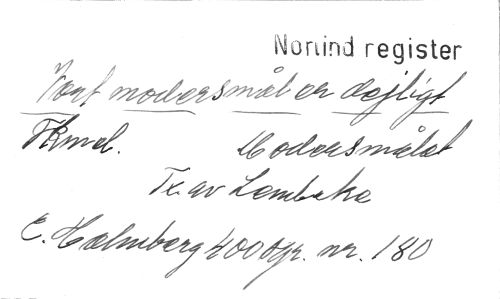 Norlind register
Vort modersmål er dejligt
Fkmel. Modersmålet
Tx. av Lembcke
E. Holmberg 4000 gr. nr. 180